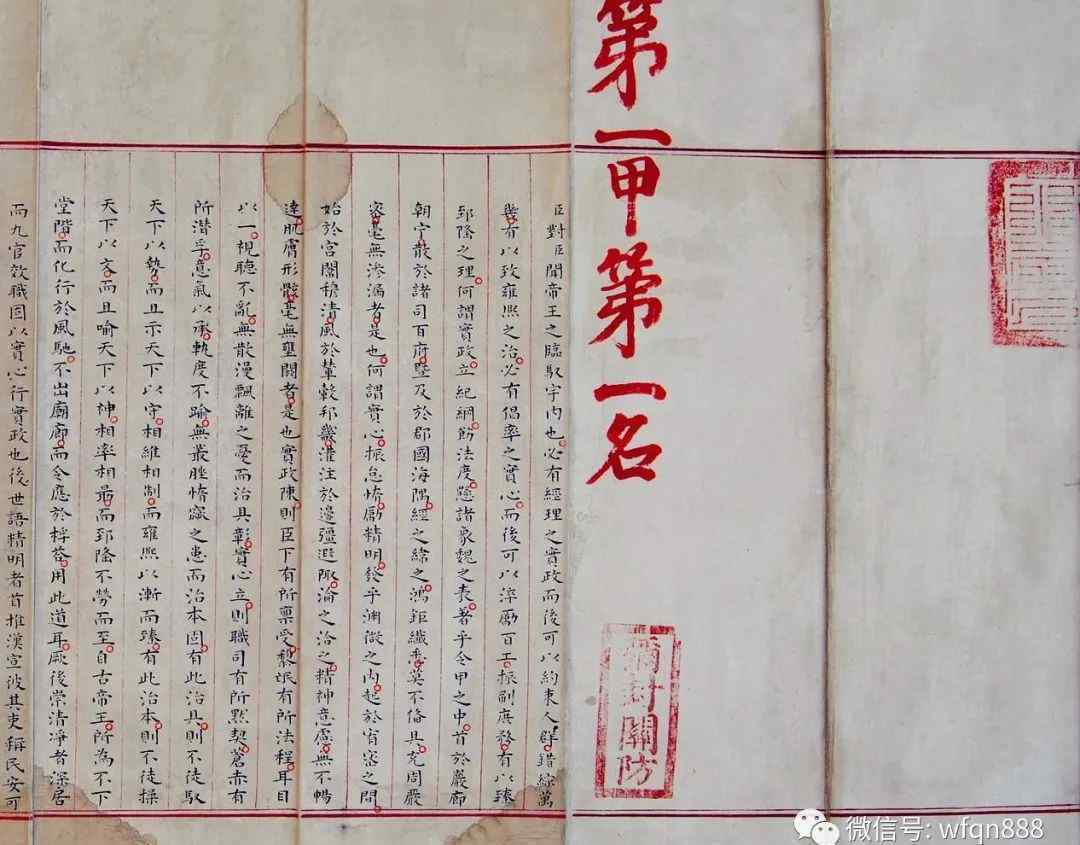 第一甲第一名
彌封關防
臣對臣聞帝王之臨馭宇內也必有經理之實政而後可以約束人群錯綜萬
幾有以致雍熙之治必有倡率之實心而後可以淬勵百工振刷庶務有以臻
郅隆之理何謂實政立紀綱飭法度懸諸象魏之表著乎令甲之中首於嚴廊
朝宁散於諸司百府暨及於郡國海隅經之緯之鴻鉅纖悉莫不備具充周嚴
密毫無滲漏者是也何謂實心振怠惰勵精明發乎淵微之內起於宥密之間
始於宮闈穆清風於輦轂邦畿灌注於邊疆遐陬淪之洽之精神意慮無不暢
達肌膚形骸毫無壅閼者是也實政陳則臣下有所稟受黎氓有所法程耳目
以一視聽不亂無散漫飄離之憂而治具彰實心立則職司有所默契蒼赤有
所潛孚意氣以承軌度不踰無叢脞惰窳之患而治本固有此治具則不徒馭
天下以勢而且示天下以守相維相制而雍熙以漸而臻有此治本則不徒操
天下以文而且喻天下以神相率相最而郅隆不勞而至自古帝王所為不下
堂階而化行於風馳不出廟廊而令應於桴答用此道耳厥後崇清凈者深居
而九官效職固以實心行實政也後世語精明者首推漢宣彼其吏稱民安可
微信号: wfqn888